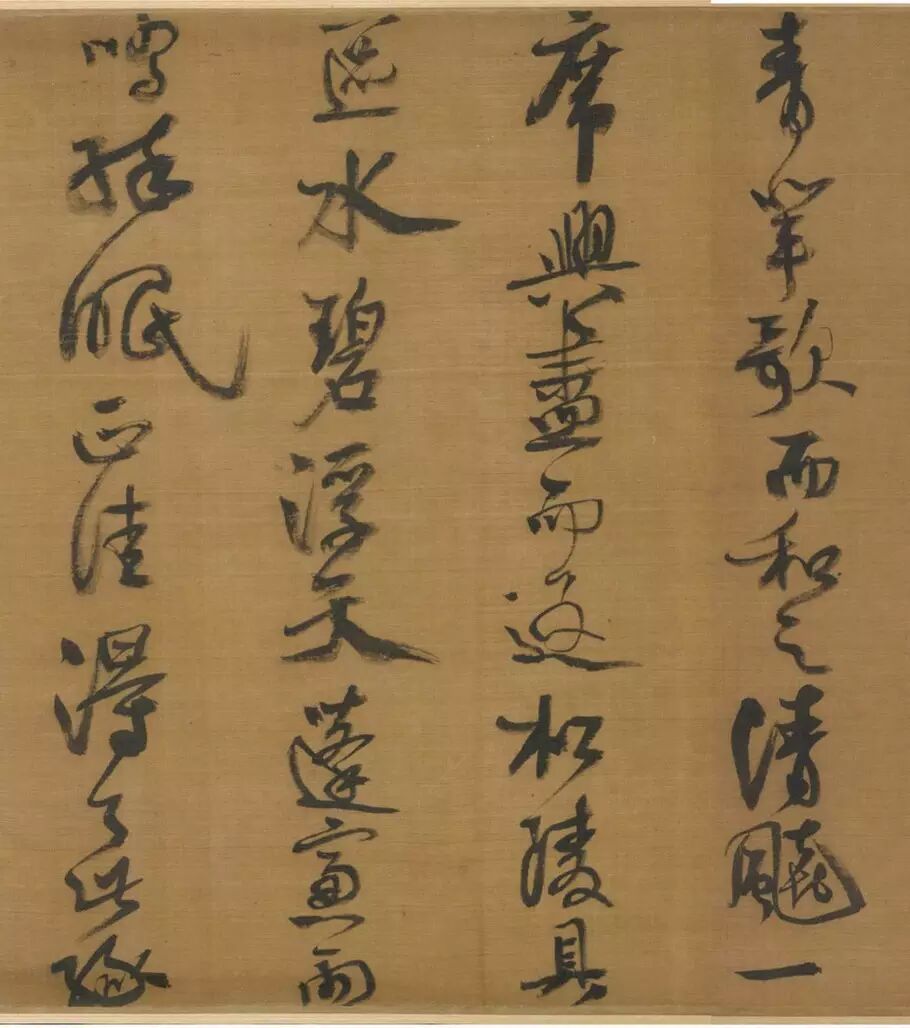 青歌而和之清飈一
席興盡而返松陵具
區水碧浮天蓬窗雨
鳴醉眠正佳得了此緣